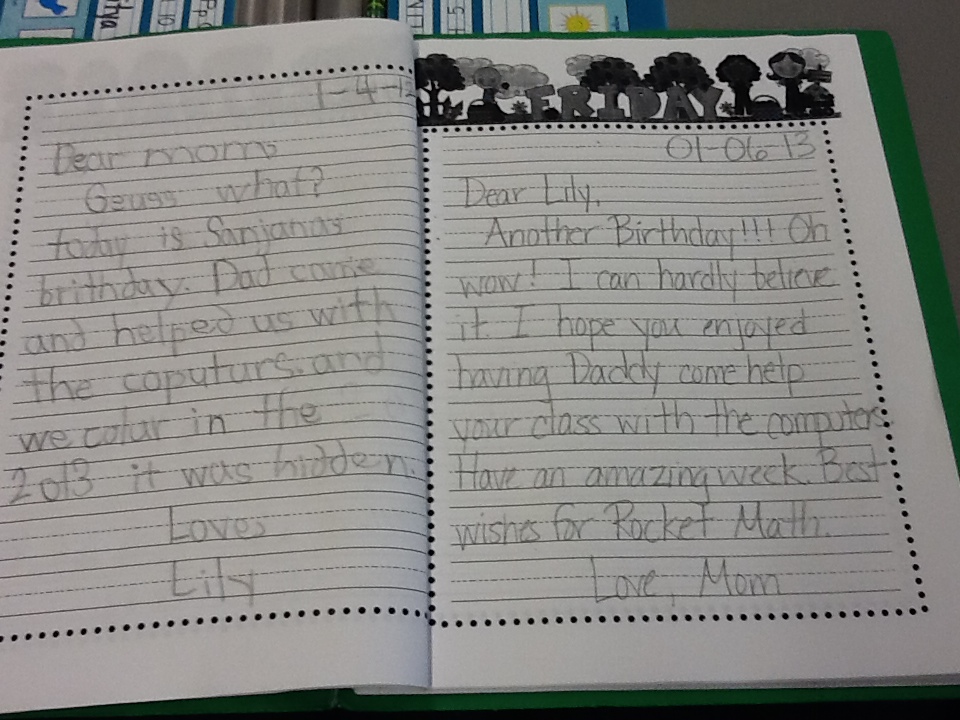 1-4-13
Dear mom,
Geuss what?
today is Sanjanas
brithday. Dad came
and helped us with
the coputurs. and
we colur in the
2013 it was hidden.
Love,
Lily
FRIDAY
01-06-13
Dear Lily,
Another Birthday!!! Oh
wow! I can hardly believe
it. I hope you enjoyed
having Daddy come help
your class with the computers.
Have an amazing week. Best
wishes for Rocket Math.
Love, Mom